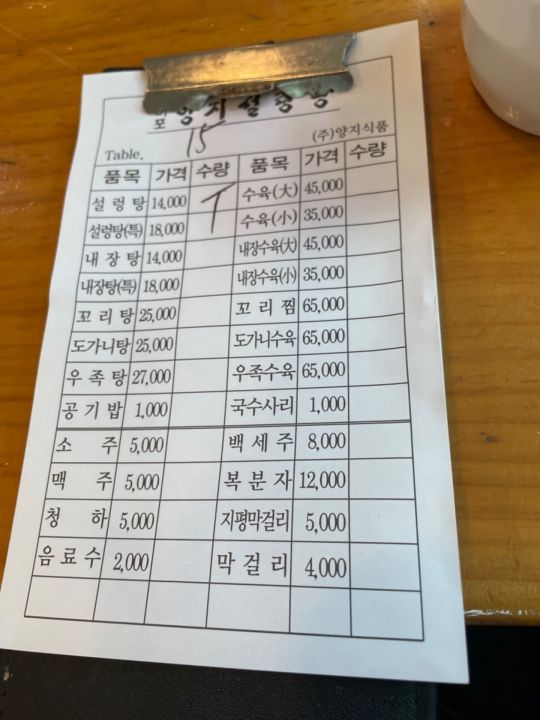 마포 양지설렁탕
15
(주)양지식품
Table.
품목 가격 수량 품목 가격 수량
설렁탕 14,000 수육(大) 45,000
설렁탕(특) 18,000 수육(小) 35,000
내장탕 14,000 내장수육(大) 45,000
내장탕(특) 18,000 내장수육(小) 35,000
꼬리탕 25,000 꼬리찜 65,000
도가니탕 25,000 도가니수육 65,000
우족탕 27,000 우족수육 65,000
공기밥 1,000 국수사리 1,000
소주 5,000 백세주 8,000
맥주 5,000 복분자 12,000
청하 5,000 지평막걸리 5,000
음료수 2,000 막걸리 4,000